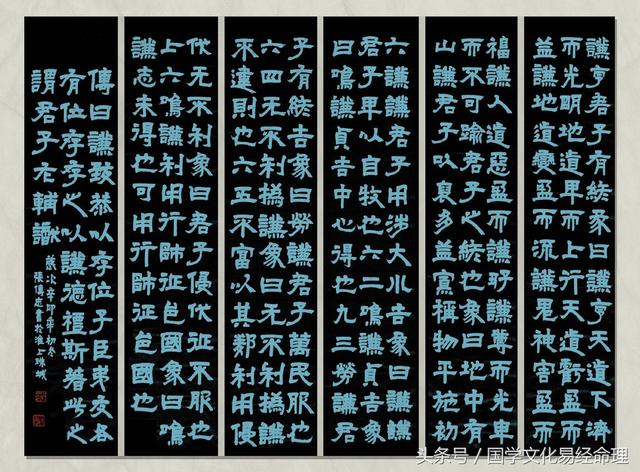 謙亨君子有終彖曰謙亨天道下濟
而光明地道卑而上行天道虧盈而
益謙地道變盈而流謙鬼神害盈而
福謙人道惡盈而好謙謙尊而光卑
而不可踰君子之終也象曰地中有
山謙君子以裒多益寡稱物平施初
六謙謙君子用涉大川吉象曰謙謙
君子卑以自牧也六二鳴謙貞吉象
曰鳴謙貞吉中心得也九三勞謙君
子有終吉象曰勞謙君子萬民服也
六四无不利撝謙象曰无不利撝謙
不違則也六五不富以其鄰利用侵
伐无不利象曰君子侵伐征不服也
上六鳴謙利用行師征邑國象曰鳴
謙志未得也可用行師征邑國也
傳曰謙致恭以存位子臣夷交各
有位存存之以謙德禮斯著此之
謂君子在輔
歲次辛卯年初冬
張傳忠書於淮上城
头条号/国学文化易经命理